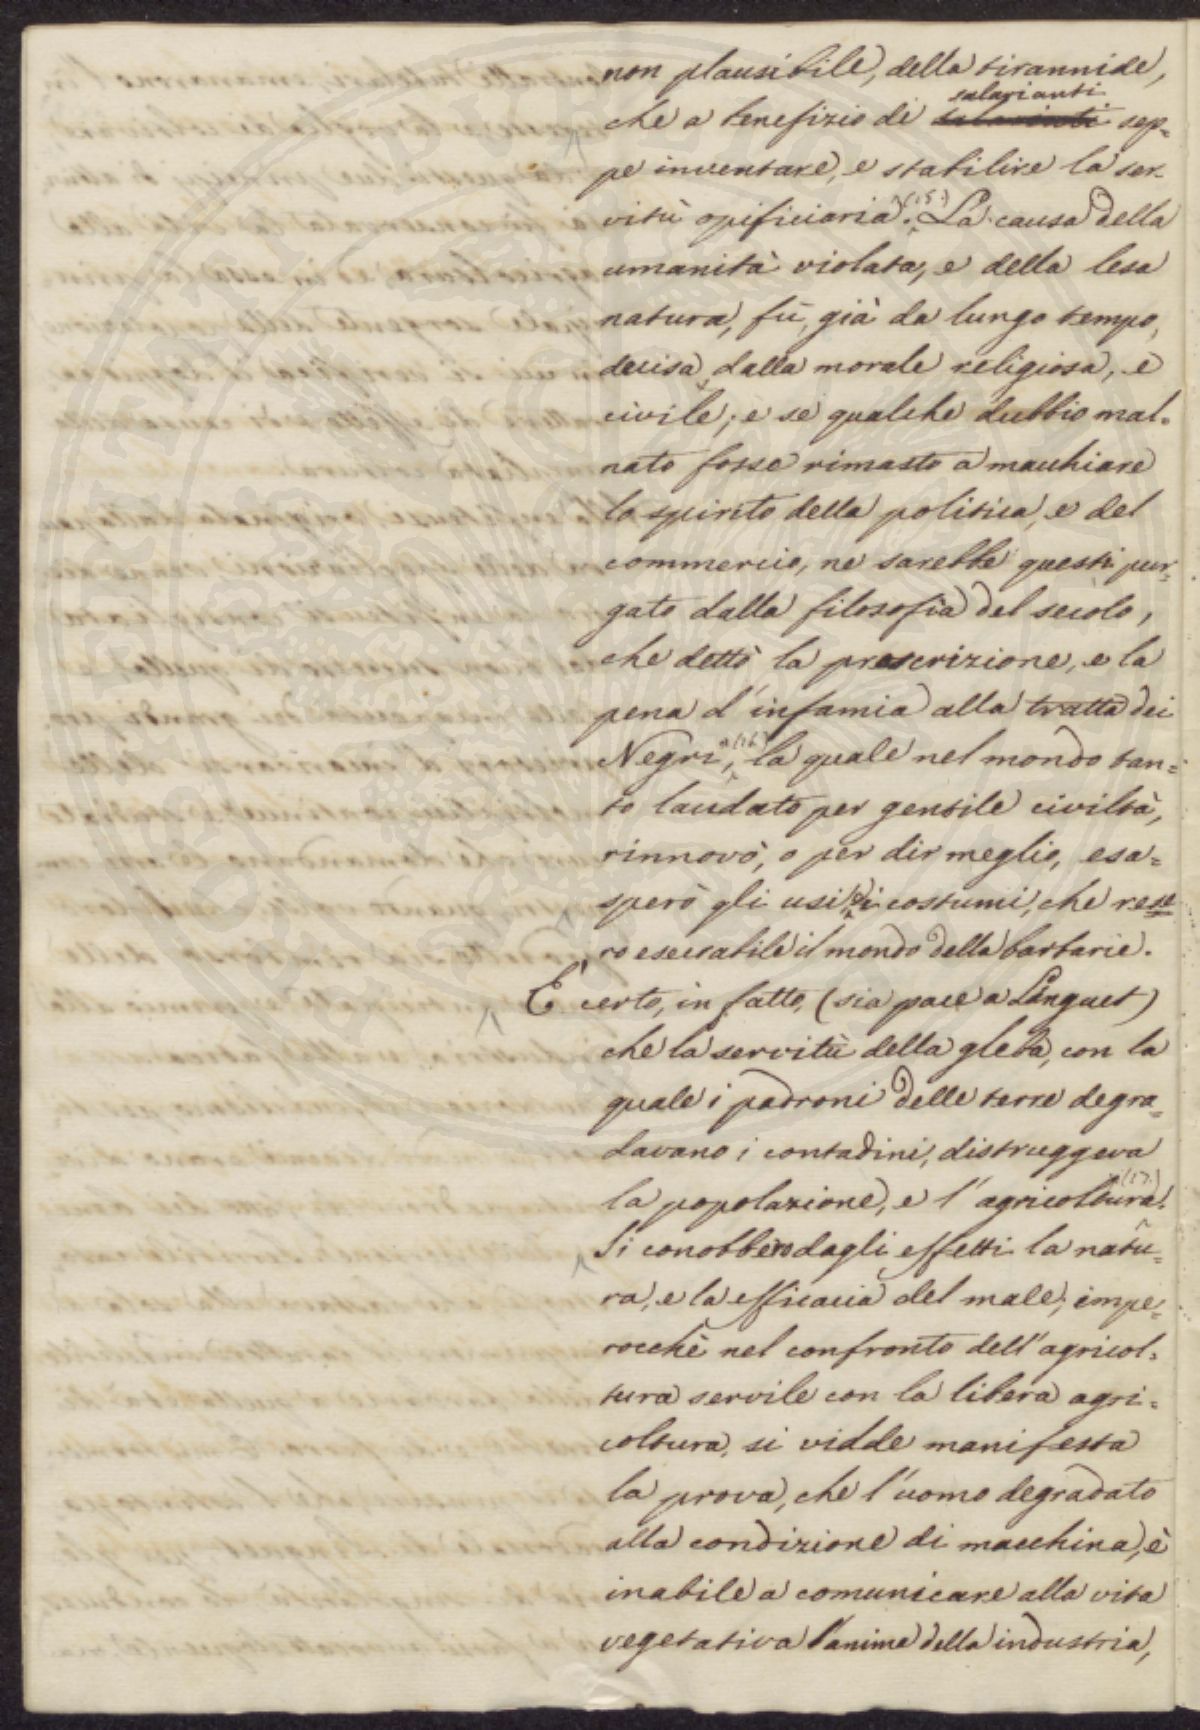 non plausibile, della tirannide,
salarianti
che a benefizio di salarianti sep=
pe inventare, e stabilire la ser-
vitù opificiaria (15.). La causa della
umanità violata, e della lesa
natura, fù, già da lungo tempo,
decisa dalla morale religiosa, e
civile; e se qualche dubbio mal=
nato fosse rimasto a macchiare
lo spirito della politica, e del
commercio, ne sarebbe questi pur=
gato dalla filosofia del secolo,
che dettò la proscrizione, e la
pena d'infamia alla tratta dei
Negri (16.), la quale nel mondo tan=
to laudato per gentile civiltà,
rinnovò, o per dir meglio, esa=
sperò gli usi, i costumi, che rese
ro esecrabile il mondo della barbarie.
È certo, in fatto, (sia pace a Linguet)
che la servitù della gleba, con la
quale i padroni delle terre degra=
davano i contadini, distruggeva
la popolazione, e l'agricoltura (17.).
Si conobbero dagli effetti la natu=
ra, e la efficacia del male; impe=
rocchè nel confronto dell'agricol=
tura servile con la libera agri=
coltura, si vidde manifesta
la prova, che l'uomo degradato
alla condizione di macchina, è
inabile a comunicare alla vita
vegetativa l'anime della industria,